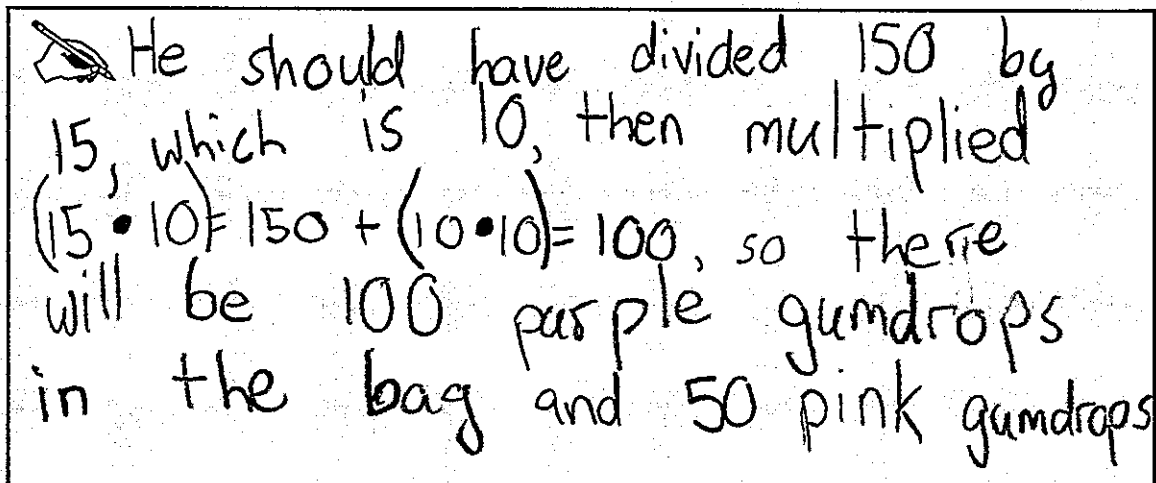 He should have divided 150 by
15, which is 10, then multiplied
(15 • 10) = 150 + (10 • 10) = 100, so there
will be 100 purple gumdrops
in the bag and 50 pink gumdrops